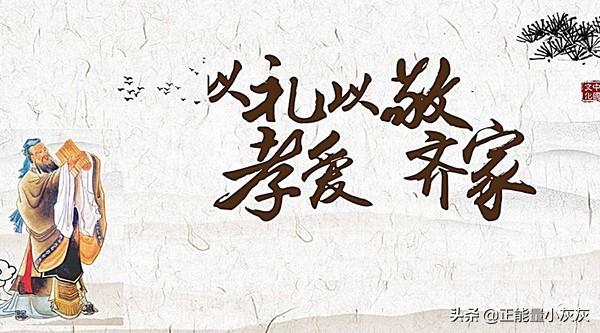 以礼以敬
孝爱 齐家
中國
文化
头条 @正能量小灰灰